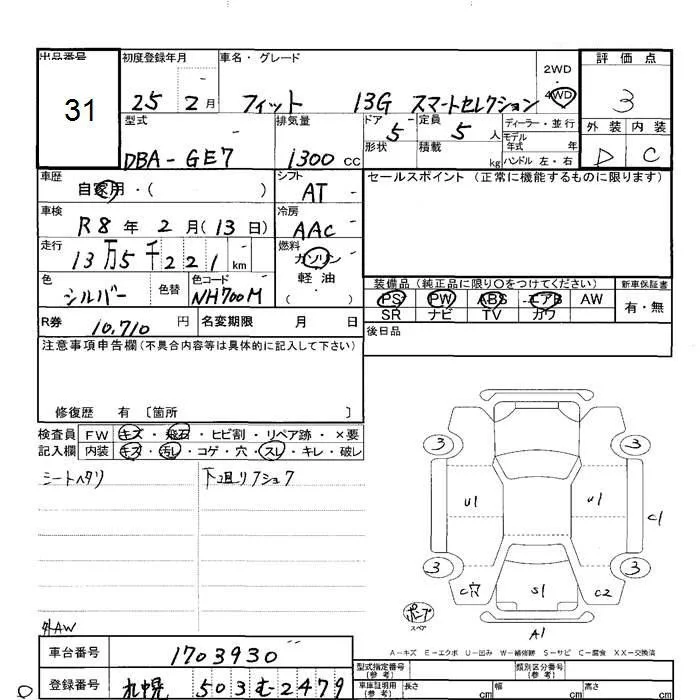 出品番号 初度登録年月 車名・グレード 評価点
31 25 2月 フィット 13G スマートセレクション 2WD・4WD 3
型式 排気量 ドア 定員 ディーラー・並行 外装 内装
DBA-GE7 1300cc 5 5人 モデル年式 年 D C
形状 積載 kg ハンドル 左・右
車歴 自家用・( ) シフト AT セールスポイント(正常に機能するものに限ります)
車検 R8年 2月(13日) 冷房 AAC
走行 13万5千221km 燃料 ガソリン
軽油
( )
色 シルバー 色替 色コード NH700M
装備品(純正品に限り○をつけてください) 新車保証書
PS PW ABS エアB AW 有・無
SR ナビ TV カワ
R券 10,710円 名変期限 月 日
後日品
注意事項申告欄(不具合内容等は具体的に記入して下さい)
修復歴 有〔箇所 〕
検査員記入欄 FW キズ・飛石・ヒビ割・リペア跡・×要
内装 キズ・汚レ・コゲ・穴・スレ・キレ・破レ
シートヘタリ 下廻リフショク
3 3
U1 U1 C1
3 3
C穴 S1 C2
ポンプ
スペア
A1
外AW
A-キズ E-エクボ U-凹み W-補修跡 S-サビ C-腐食 XX-交換済
車台番号 1703930
登録番号 札幌 503む2479
型式指定番号(参考) 類別区分番号(参考)
車庫証明用(参考) 長さ cm 幅 cm 高さ cm